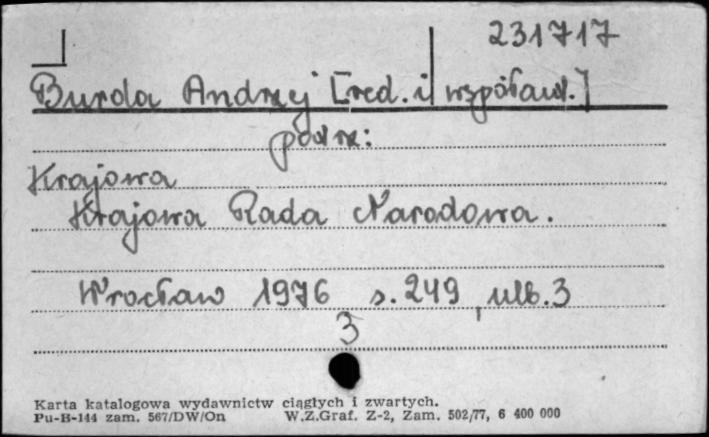 231717
Burda Andrzej [red. i współaut.]
patrz:
Krajowa
Krajowa Rada Narodowa.
Wrocław 1976 s. 249, nlb. 3
3
Karta katalogowa wydawnictw ciągłych i zwartych.
Pu-B-144 zam. 567/DW/On W.Z.Graf. Z-2, Zam. 502/77, 6 400 000